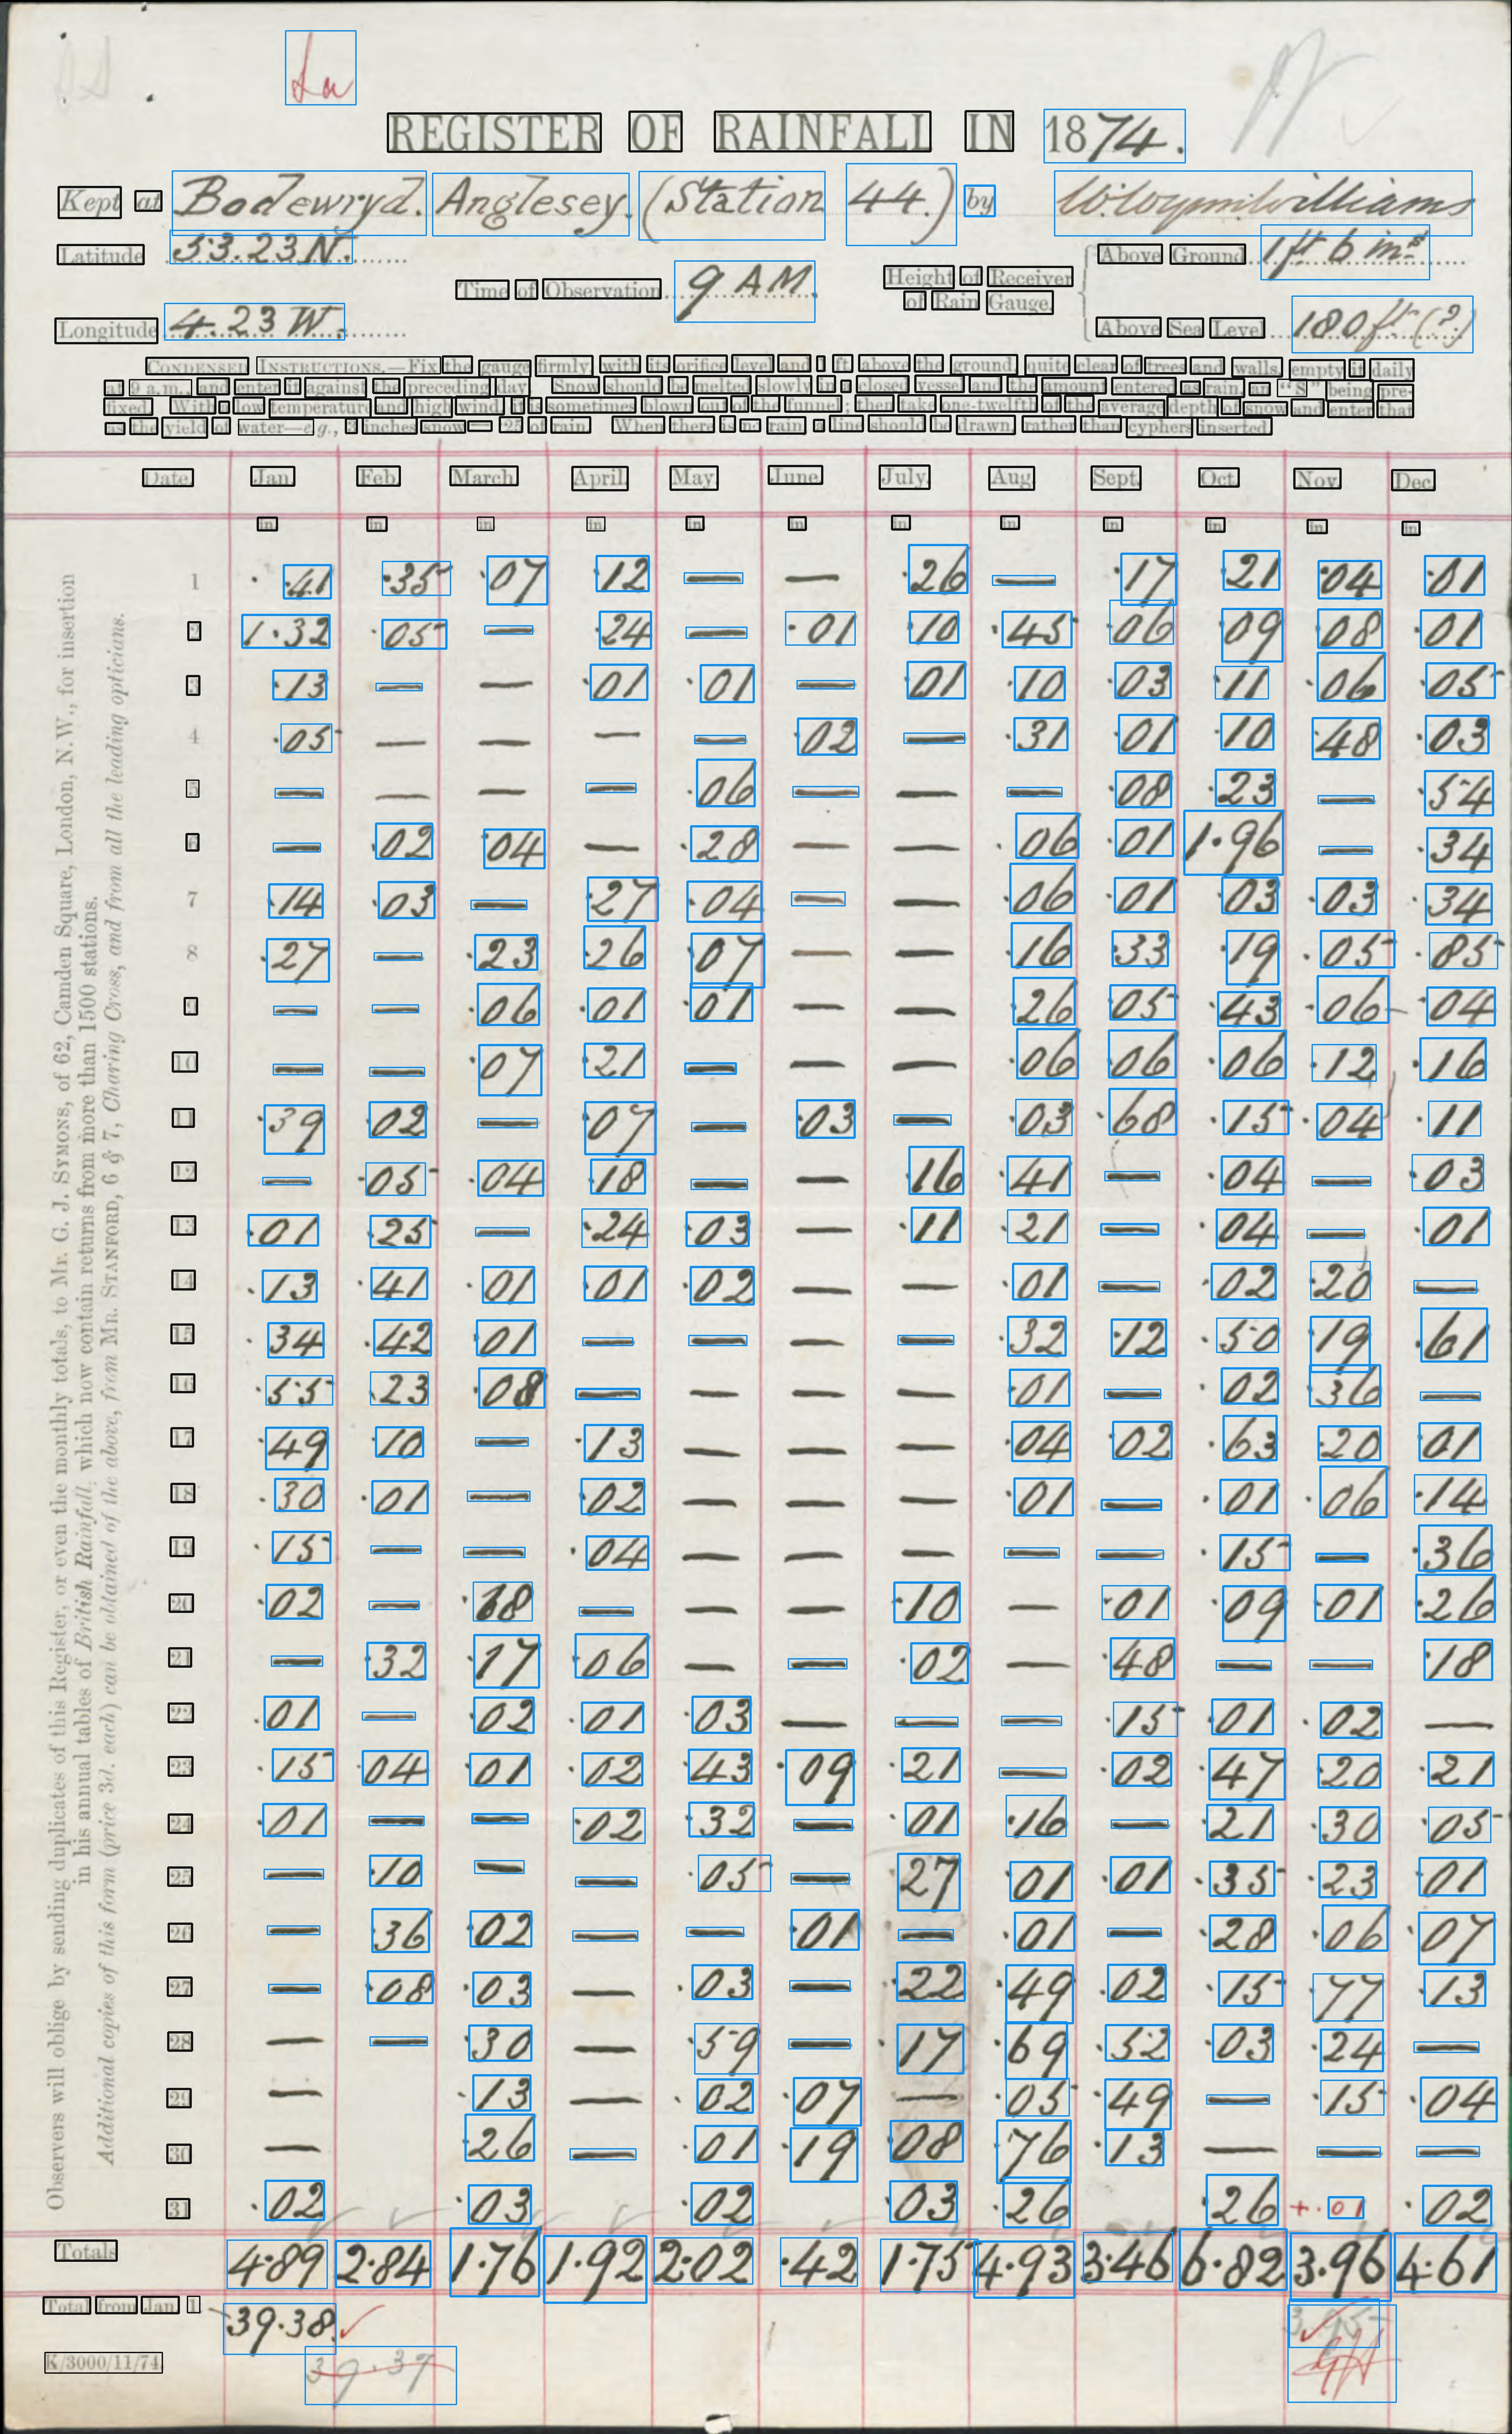 La
REGISTER OF RAINFALL IN 1874.
Kept at Bodewryd. Anglesey. (Station 44.) by
Latitude 53.23 N. Above Ground 1 ft 6 ins
Time of Observation 9 AM. Height of Receiver of Rain Gauge
Longitude 4.23 W. Above Sea Level 180 ft (?)
CONDENSED INSTRUCTIONS.—Fix the gauge firmly, with its orifice level and 1 ft. above the ground, quite clear of trees and walls, empty it daily
at 9 a.m., and enter it against the preceding day. Snow should be melted slowly in a closed vessel and the amount entered as rain, an "S" being pre-
fixed. With a low temperature and high wind, it is sometimes blown out of the funnel; then take one-twelfth of the average depth of snow and enter that
as the yield of water—e.g., 3 inches snow = ·25 of rain. When there is no rain a line should be drawn, rather than cyphers inserted.
Date. Jan. Feb. March. April. May. June. July. Aug. Sept. Oct. Nov. Dec.
in. in. in. in. in. in. in. in. in. in. in. in.
1 ·41 ·35 ·07 ·12 — — ·26 — ·17 ·21 ·04 ·01
2 1·32 ·05 — ·24 — ·01 ·10 ·45 ·06 ·09 ·08 ·01
3 ·13 — — ·01 ·01 — ·01 ·10 ·03 ·11 ·06 ·05
4 ·05 — — — — ·02 — ·31 ·01 ·10 ·48 ·03
5 — — — — ·06 — — — ·08 ·23 — ·54
6 — ·02 ·04 — ·28 — — ·06 ·01 1·96 — ·34
7 ·14 ·03 — ·27 ·04 — — ·06 ·01 ·03 ·03 ·34
8 ·27 — ·23 ·26 ·07 — — ·16 ·33 ·19 ·05 ·85
9 — — ·06 ·01 ·01 — — ·26 ·05 ·43 ·06 ·04
10 — — ·07 ·21 — — — ·06 ·06 ·06 ·12 ·16
11 ·39 ·02 — ·07 — ·03 — ·03 ·68 ·15 ·04 ·11
12 — ·05 ·04 ·18 — — ·16 ·41 — ·04 — ·03
13 ·01 ·25 — ·24 ·03 — ·11 ·21 — ·04 — ·01
14 ·13 ·41 ·01 ·01 ·02 — — ·01 — ·02 ·20 —
15 ·34 ·42 ·01 — — — — ·32 ·12 ·50 ·19 ·61
16 ·55 ·23 ·08 — — — — ·01 — ·02 ·36 —
17 ·49 ·10 — ·13 — — — ·04 ·02 ·63 ·20 ·01
18 ·30 ·01 — ·02 — — — ·01 — ·01 ·06 ·14
19 ·15 — — ·04 — — — — — ·15 — ·36
20 ·02 — ·18 — — — ·10 — ·01 ·09 ·01 ·26
21 — ·32 ·17 ·06 — — ·02 — ·48 — — ·18
22 ·01 — ·02 ·01 ·03 — — — ·15 ·01 ·02 —
23 ·15 ·04 ·01 ·02 ·43 ·09 ·21 — ·02 ·47 ·20 ·21
24 ·01 — — ·02 ·32 — ·01 ·16 — ·21 ·30 ·05
25 — ·10 — — ·05 — ·27 ·01 ·01 ·35 ·23 ·01
26 — ·36 ·02 — — ·01 — ·01 — ·28 ·06 ·07
27 — ·08 ·03 — ·03 — ·22 ·49 ·02 ·15 ·77 ·13
28 — — ·30 — ·59 — ·17 ·69 ·52 ·03 ·24 —
29 — ·13 — ·02 ·07 — ·05 ·49 — ·15 ·04
30 — ·26 — ·01 ·19 ·08 ·76 ·13 — — —
31 ·02 ·03 ·02 ·03 ·26 ·26 +·01 ·02
Totals 4·89 2·84 1·76 1·92 2·02 ·42 1·75 4·93 3·46 6·82 3·96 4·61
Total from Jan. 1 39·38 3·95
K/3000/11/74. 39·37
Observers will oblige by sending duplicates of this Register, or even the monthly totals, to Mr. G. J. SYMONS, of 62, Camden Square, London, N.W., for insertion
in his annual tables of British Rainfall, which now contain returns from more than 1500 stations.
Additional copies of this form (price 3d. each) can be obtained of the above, from MR. STANFORD, 6 & 7, Charing Cross, and from all the leading opticians.